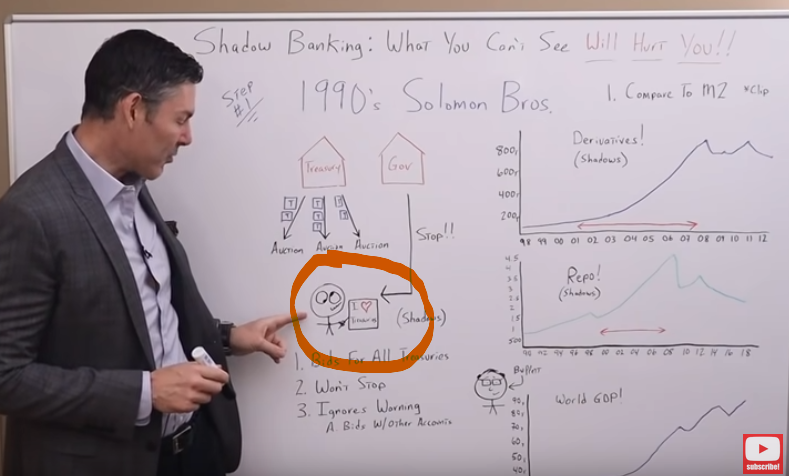 Shadow Banking: What You Can't See Will Hurt You!!
Step #1
1990's Solomon Bros.
1. Compare To M2 *Clip
Treasury
Gov
T
T
T
T
T
T
T
Auction
Auction
Auction
Stop!!
I ♥
Treasuries
(Shadows)
1. Bids For All Treasuries
2. Won't Stop
3. Ignores Warning
A. Bids W/Other Accounts
Derivatives!
(Shadows)
800T
600T
400T
200T
98 99 00 01 02 03 04 05 06 07 08 09 10 11 12
Repo!
(Shadows)
4.5
4
3.5
3
2.5
2
1.5
1
500
90 92 94 96 98 00 02 04 06 08 10 12 14 16 18
Buffet
World GDP!
90T
80T
70T
60T
50T
40T
subscribe!